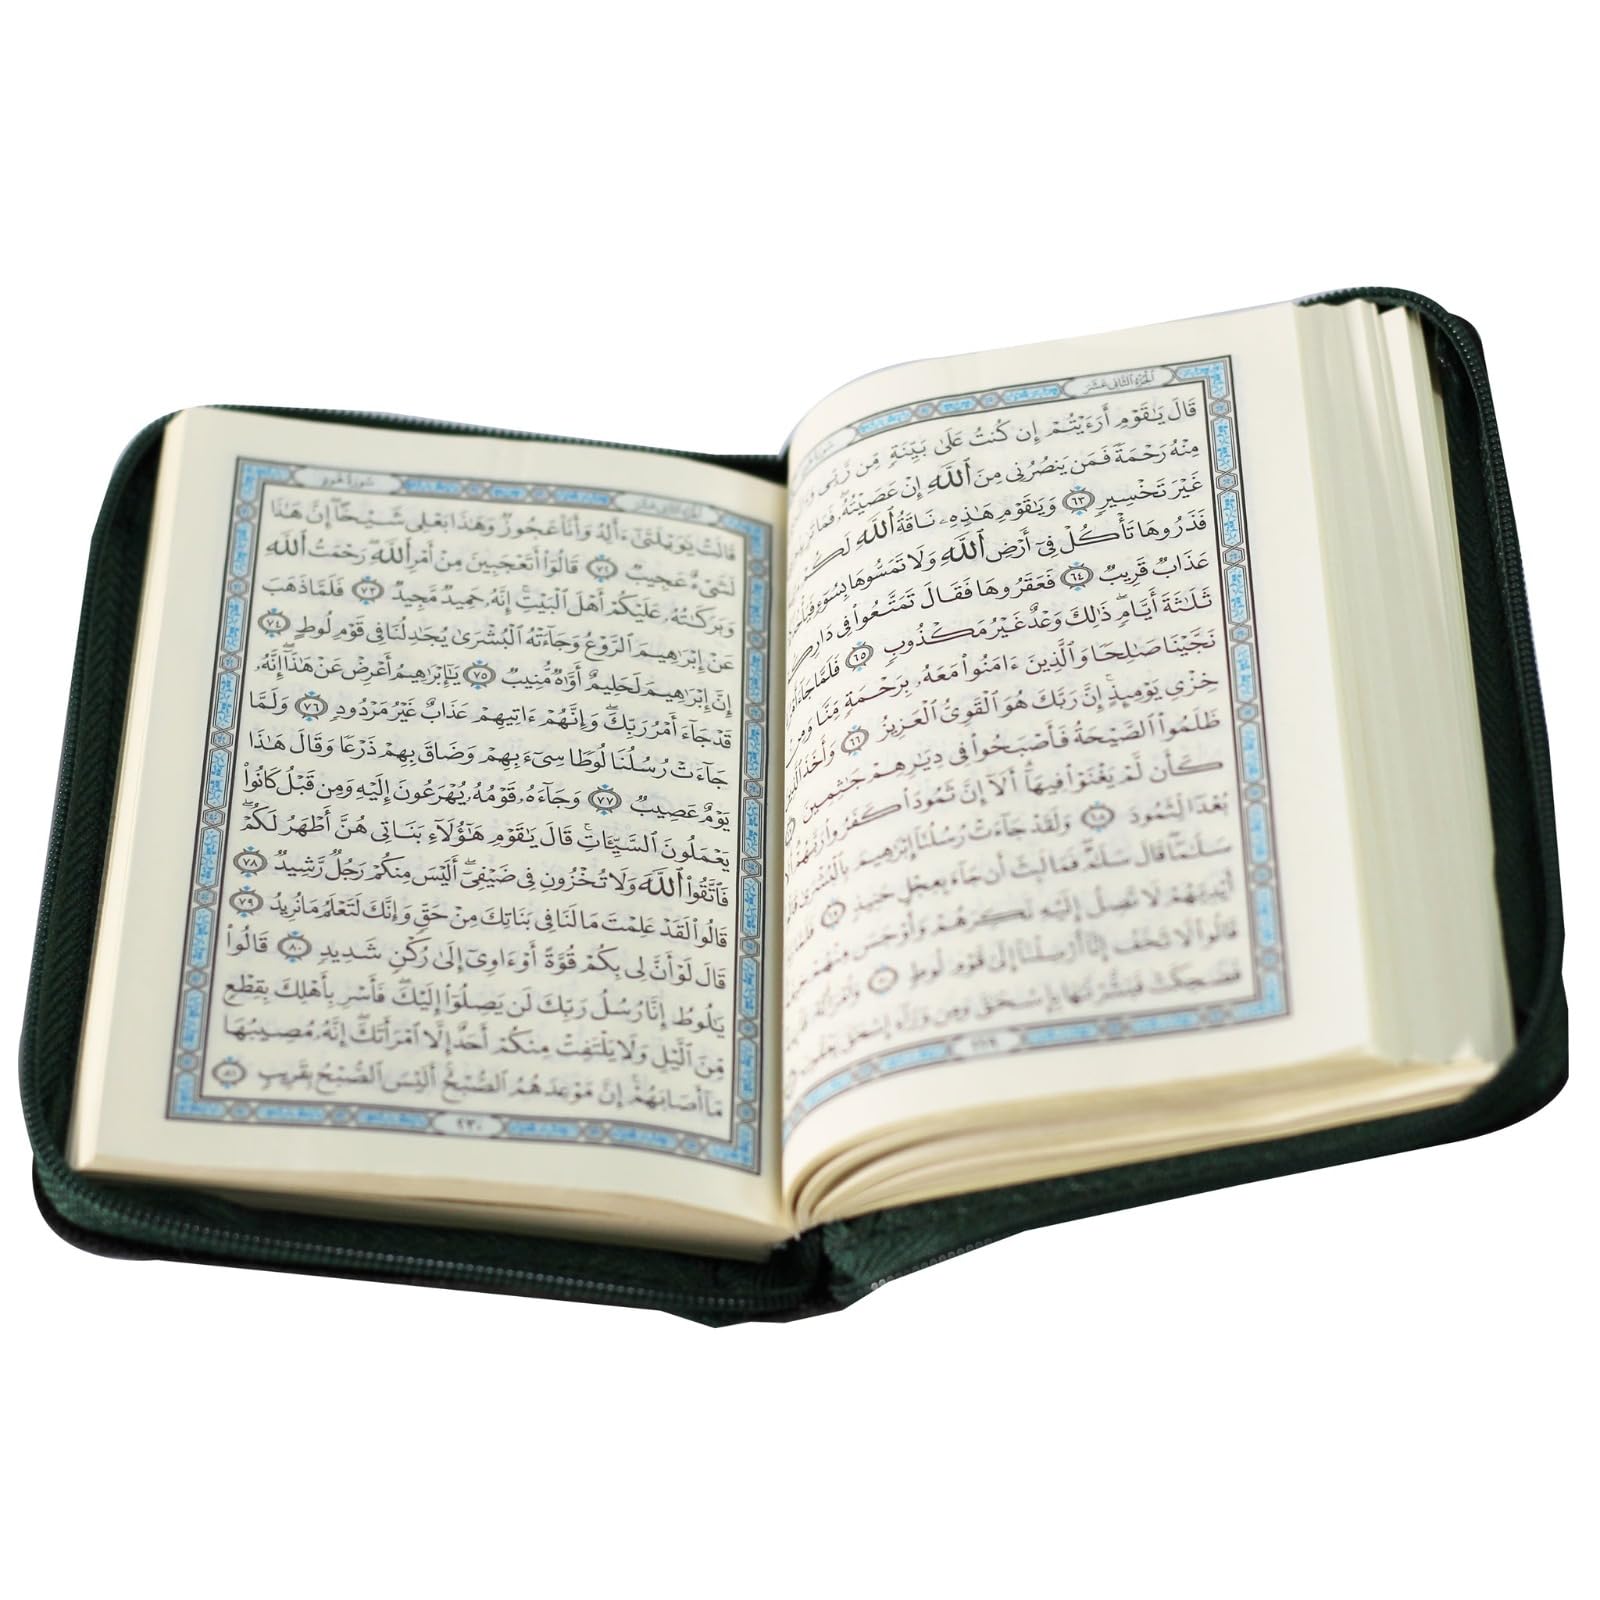 الجزء الثاني عشر
قَالَ يَٰقَوْمِ أَرَءَيْتُمْ إِن كُنتُ عَلَىٰ بَيِّنَةٍ مِّن رَّبِّي
مِنْهُ رَحْمَةً فَمَن يَنصُرُنِي مِنَ ٱللَّهِ إِنْ عَصَيْتُهُۥ فَمَا
غَيْرَ تَخْسِيرٍ ٦٣ وَيَٰقَوْمِ هَٰذِهِۦ نَاقَةُ ٱللَّهِ
فَذَرُوهَا تَأْكُلْ فِيٓ أَرْضِ ٱللَّهِ وَلَا تَمَسُّوهَا بِسُوٓءٍ
عَذَابٌ قَرِيبٌ ٦٤ فَعَقَرُوهَا فَقَالَ تَمَتَّعُوا۟ فِي
ثَلَٰثَةَ أَيَّامٍ ذَٰلِكَ وَعْدٌ غَيْرُ مَكْذُوبٍ ٦٥ فَلَمَّا جَآءَ
نَجَّيْنَا صَٰلِحًا وَٱلَّذِينَ ءَامَنُوا۟ مَعَهُۥ بِرَحْمَةٍ مِّنَّا وَمِنْ
خِزْيِ يَوْمِئِذٍ إِنَّ رَبَّكَ هُوَ ٱلْقَوِيُّ ٱلْعَزِيزُ ٦٦ وَأَخَذَ
ظَلَمُوا۟ ٱلصَّيْحَةُ فَأَصْبَحُوا۟ فِي دِيَٰرِهِمْ جَٰثِمِينَ
كَأَن لَّمْ يَغْنَوْا۟ فِيهَآ أَلَآ إِنَّ ثَمُودَا۟ كَفَرُوا۟ رَبَّهُمْ
بُعْدًا لِّثَمُودَ ٦٨ وَلَقَدْ جَآءَتْ رُسُلُنَآ إِبْرَٰهِيمَ بِٱلْبُشْرَىٰ
سَلَٰمًا قَالَ سَلَٰمٌ فَمَا لَبِثَ أَن جَآءَ بِعِجْلٍ حَنِيذٍ ٦٩
أَيْدِيَهُمْ لَا تَصِلُ إِلَيْهِ نَكِرَهُمْ وَأَوْجَسَ مِنْهُمْ
قَالُوا۟ لَا تَخَفْ إِنَّآ أُرْسِلْنَآ إِلَىٰ قَوْمِ لُوطٍ ٧٠ وَٱمْرَأَتُهُۥ
فَضَحِكَتْ فَبَشَّرْنَٰهَا بِإِسْحَٰقَ وَمِن وَرَآءِ إِسْحَٰقَ يَعْقُوبَ
٢٢٩
الجزء الثاني عشر سورة هود
قَالَتْ يَٰوَيْلَتَىٰٓ ءَأَلِدُ وَأَنَا۠ عَجُوزٌ وَهَٰذَا بَعْلِي شَيْخًا إِنَّ هَٰذَا
لَشَيْءٌ عَجِيبٌ ٧٢ قَالُوٓا۟ أَتَعْجَبِينَ مِنْ أَمْرِ ٱللَّهِ رَحْمَتُ ٱللَّهِ
وَبَرَكَٰتُهُۥ عَلَيْكُمْ أَهْلَ ٱلْبَيْتِ إِنَّهُۥ حَمِيدٌ مَّجِيدٌ ٧٣ فَلَمَّا ذَهَبَ
عَنْ إِبْرَٰهِيمَ ٱلرَّوْعُ وَجَآءَتْهُ ٱلْبُشْرَىٰ يُجَٰدِلُنَا فِي قَوْمِ لُوطٍ ٧٤
إِنَّ إِبْرَٰهِيمَ لَحَلِيمٌ أَوَّٰهٌ مُّنِيبٌ ٧٥ يَٰٓإِبْرَٰهِيمُ أَعْرِضْ عَنْ هَٰذَآ إِنَّهُۥ
قَدْ جَآءَ أَمْرُ رَبِّكَ وَإِنَّهُمْ ءَاتِيهِمْ عَذَابٌ غَيْرُ مَرْدُودٍ ٧٦ وَلَمَّا
جَآءَتْ رُسُلُنَا لُوطًا سِيٓءَ بِهِمْ وَضَاقَ بِهِمْ ذَرْعًا وَقَالَ هَٰذَا
يَوْمٌ عَصِيبٌ ٧٧ وَجَآءَهُۥ قَوْمُهُۥ يُهْرَعُونَ إِلَيْهِ وَمِن قَبْلُ كَانُوا۟
يَعْمَلُونَ ٱلسَّيِّـَٔاتِ قَالَ يَٰقَوْمِ هَٰٓؤُلَآءِ بَنَاتِي هُنَّ أَطْهَرُ لَكُمْ
فَٱتَّقُوا۟ ٱللَّهَ وَلَا تُخْزُونِ فِي ضَيْفِيٓ أَلَيْسَ مِنكُمْ رَجُلٌ رَّشِيدٌ ٧٨
قَالُوا۟ لَقَدْ عَلِمْتَ مَا لَنَا فِي بَنَاتِكَ مِنْ حَقٍّ وَإِنَّكَ لَتَعْلَمُ مَا نُرِيدُ ٧٩
قَالَ لَوْ أَنَّ لِي بِكُمْ قُوَّةً أَوْ ءَاوِيٓ إِلَىٰ رُكْنٍ شَدِيدٍ ٨٠ قَالُوا۟
يَٰلُوطُ إِنَّا رُسُلُ رَبِّكَ لَن يَصِلُوٓا۟ إِلَيْكَ فَأَسْرِ بِأَهْلِكَ بِقِطْعٍ
مِّنَ ٱلَّيْلِ وَلَا يَلْتَفِتْ مِنكُمْ أَحَدٌ إِلَّا ٱمْرَأَتَكَ إِنَّهُۥ مُصِيبُهَا
مَآ أَصَابَهُمْ إِنَّ مَوْعِدَهُمُ ٱلصُّبْحُ أَلَيْسَ ٱلصُّبْحُ بِقَرِيبٍ ٨١
٢٣٠